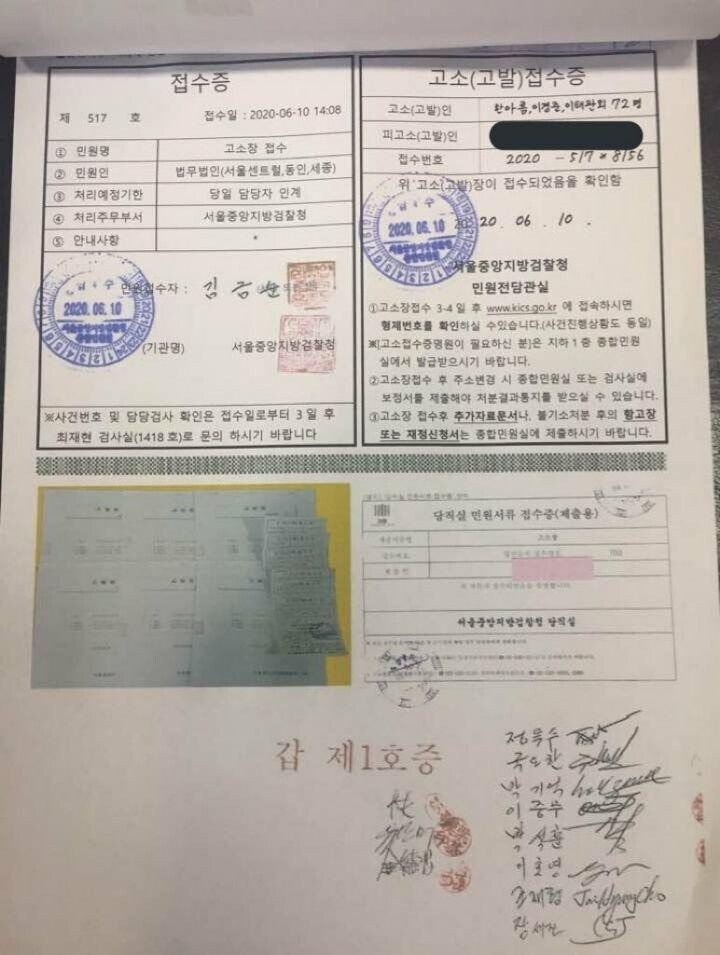 접수증
제 517 호 접수일 : 2020-06-10 14:08
① 민원명 고소장 접수
② 민원인 법무법인(서울센트럴,동인,세종)
③ 처리예정기한 당일 담당자 인계
④ 처리주무부서 서울중앙지방검찰청
⑤ 안내사항 *
민원접수자 : 김금
접수
2020.06.10
(기관명) 서울중앙지방검찰청
※사건번호 및 담당검사 확인은 접수일로부터 3일 후
최재현 검사실(1418 호)로 문의 하시기 바랍니다
고소(고발)접수증
고소(고발)인 한아름,이경준,이태관외 72명
피고소(고발)인
접수번호 2020 - 517 * 8156
위 고소(고발)장이 접수되었음을 확인함
접수
2020.06.10
2020 06 10 .
서울중앙지방검찰청
민원전담관실
①고소장접수 3-4일 후 www.kics.go.kr 에 접속하시면
형제번호를 확인하실 수있습니다.(사건진행상황도 동일)
※[고소접수증명원이 필요하신 분]은 지하 1층 종합민원
실에서 발급받으시기 바랍니다.
②고소장접수 후 주소변경 시 종합민원실 또는 검사실에
보정서를 제출해야 처분결과통지를 받으실 수 있습니다.
③고소장 접수후 추가자료문서나, 불기소처분 후의 항고장
또는 재정신청서는 종합민원실에 제출하시기 바랍니다.
당직실 민원서류 접수증(제출용)
고소장
서울중앙지방검찰청 당직실
갑 제1호증
정묵수
국요한
박기억
이중무
박석훈
이호영
조재형 JaeHyungCho
장세진